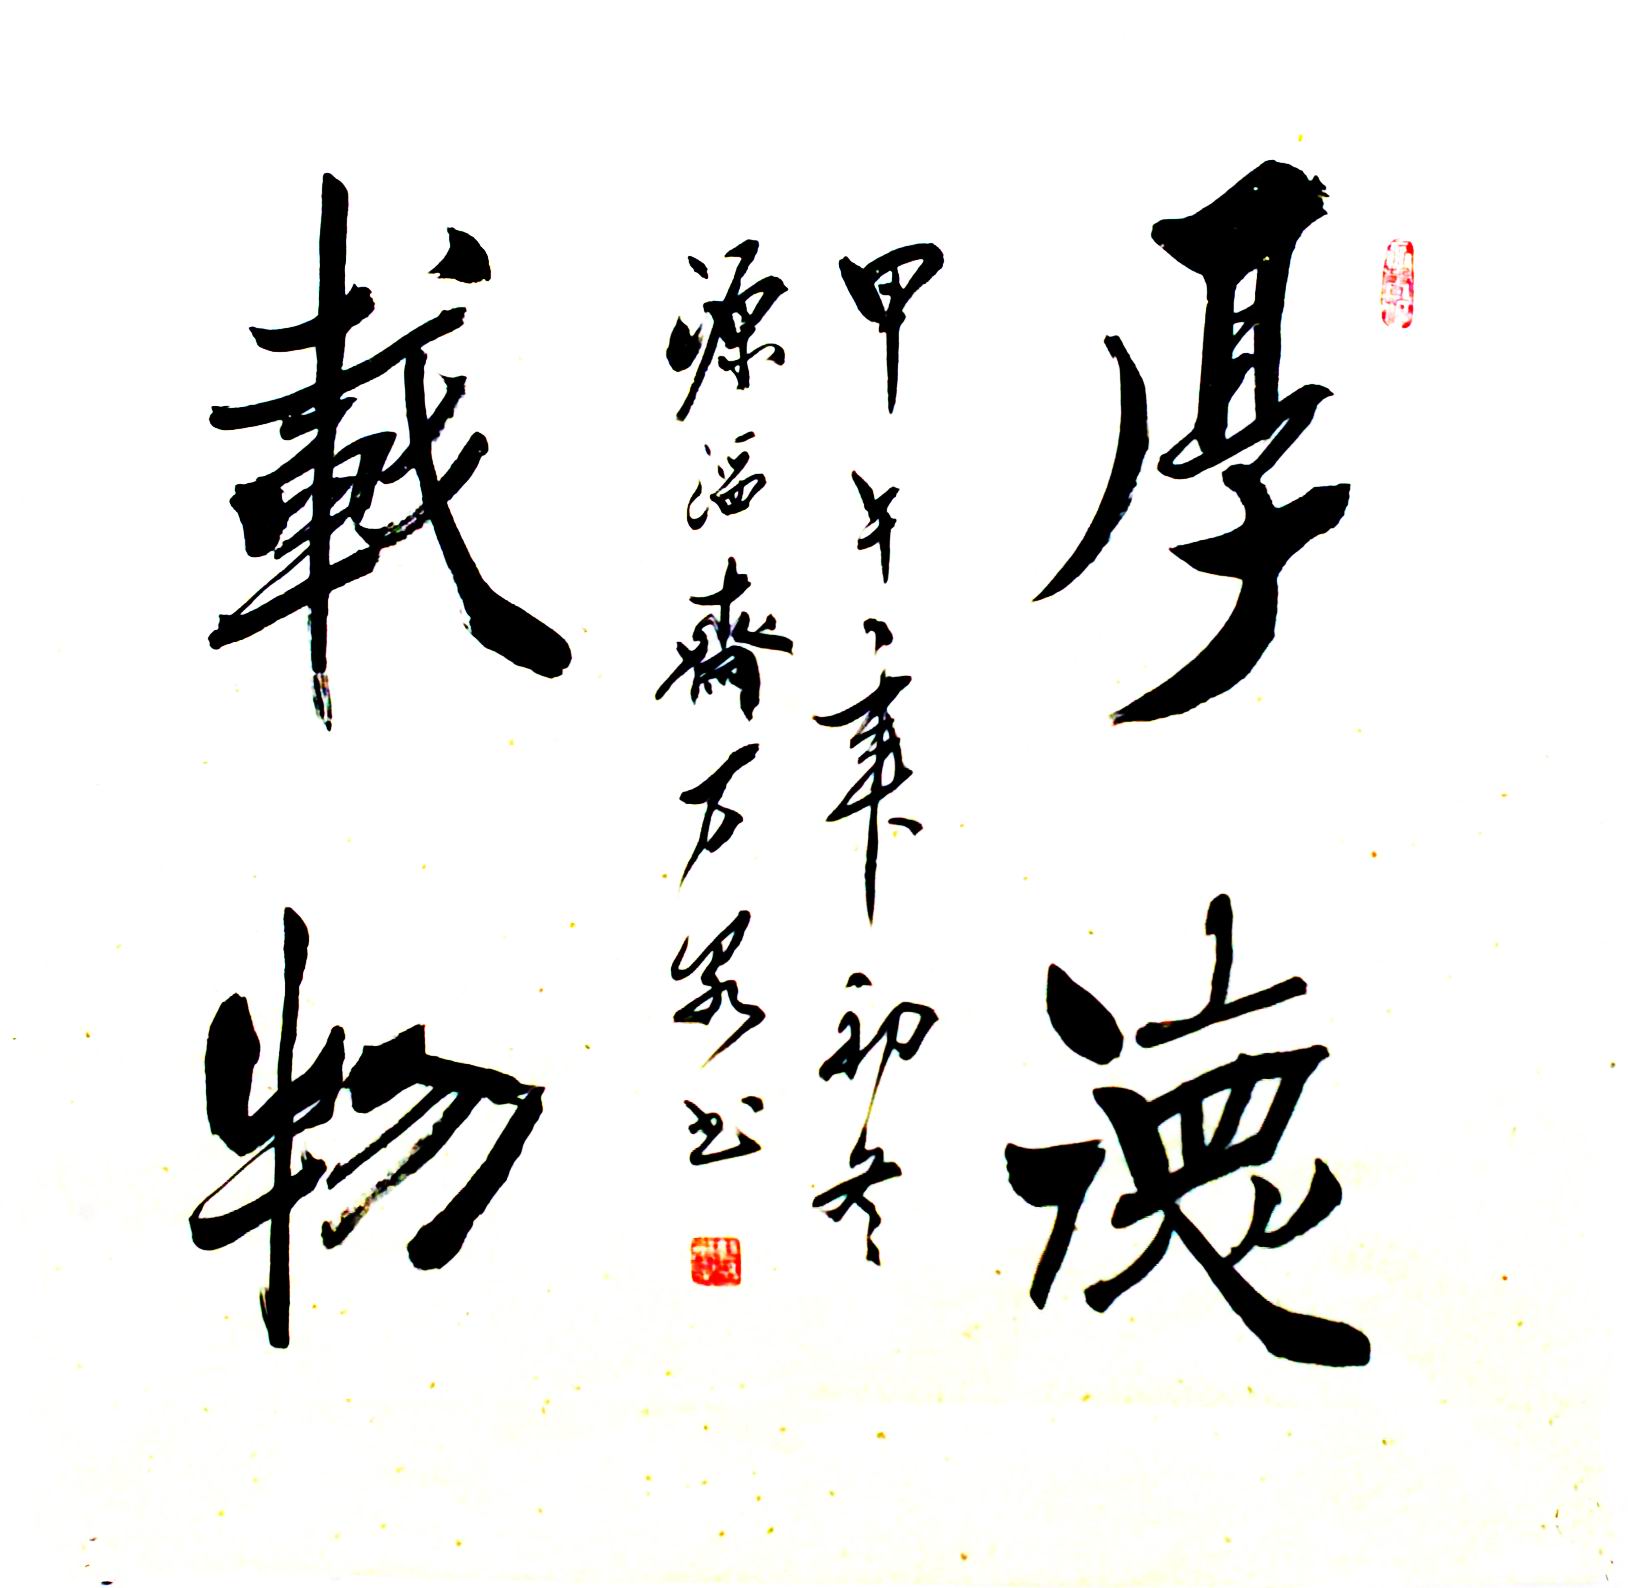 厚德
載物
甲午年初冬
源溢齋万泉书